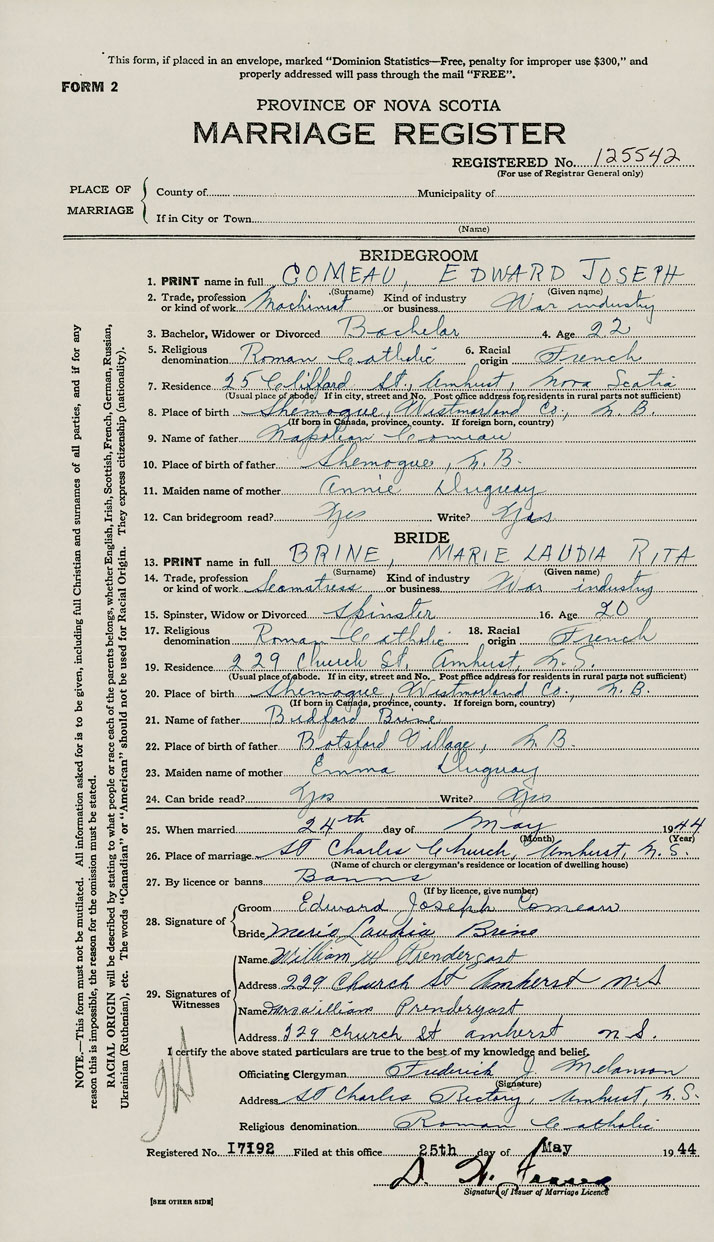 This form, if placed in an envelope, marked "Dominion Statistics—Free, penalty for improper use $300," and
properly addressed will pass through the mail "FREE".
FORM 2
PROVINCE OF NOVA SCOTIA
MARRIAGE REGISTER
REGISTERED No. 125542
(For use of Registrar General only)
PLACE OF MARRIAGE
County of Municipality of
If in City or Town
(Name)
BRIDEGROOM
1. PRINT name in full COMEAU, EDWARD JOSEPH
(Surname) (Given name)
2. Trade, profession or kind of work Machinist Kind of industry or business War industry
3. Bachelor, Widower or Divorced Bachelor 4. Age 22
5. Religious denomination Roman Catholic 6. Racial origin French
7. Residence 25 Clifford St., Amhurst, Nova Scotia
(Usual place of abode. If in city, street and No. Post office address for residents in rural parts not sufficient)
8. Place of birth Shemogue, Westmorland Co., N.B.
(If born in Canada, province, county. If foreign born, country)
9. Name of father Napolean Comeau
10. Place of birth of father Shemogue, N.B.
11. Maiden name of mother Annie Duguay
12. Can bridegroom read? Yes Write? Yes
BRIDE
13. PRINT name in full BRINE, MARIE LAUDIA RITA
(Surname) (Given name)
14. Trade, profession or kind of work Seamstress Kind of industry or business War industry
15. Spinster, Widow or Divorced Spinster 16. Age 20
17. Religious denomination Roman Catholic 18. Racial origin French
19. Residence 229 Church St. Amhurst, N.S.
(Usual place of abode. If in city, street and No. Post office address for residents in rural parts not sufficient)
20. Place of birth Shemogue, Westmorland Co., N.B.
(If born in Canada, province, county. If foreign born, country)
21. Name of father Bedford Brine
22. Place of birth of father Botsford Village, N.B.
23. Maiden name of mother Emma Duguay
24. Can bride read? Yes Write? Yes
25. When married 24th day of May 1944
(Month) (Year)
26. Place of marriage St Charles Church, Amhurst, N.S.
(Name of church or clergyman's residence or location of dwelling house)
27. By licence or banns Banns
(If by licence, give number)
28. Signature of
Groom Edward Joseph Comeau
Bride Marie Laudia Brine
29. Signatures of Witnesses
Name William W Prendergast
Address 229 Church St Amherst N.S
Name Mrs William Prendergast
Address 229 church St amherst n S.
I certify the above stated particulars are true to the best of my knowledge and belief.
Officiating Clergyman Frederick J. Melanson
(Signature)
Address St Charles Rectory, Amhurst, N.S.
Religious denomination Roman Catholic
Registered No. 17192 Filed at this office 25th day of May 1944
Signature of Issuer of Marriage Licence
[SEE OTHER SIDE]
NOTE.—This form must not be mutilated. All information asked for is to be given, including full Christian and surnames of all parties, and if for any
reason this is impossible, the reason for the omission must be stated.
RACIAL ORIGIN will be described by stating to what people or race each of the parents belongs, whether English, Irish, Scottish, French, German, Russian,
Ukrainian (Ruthenian), etc. The words "Canadian" or "American" should not be used for Racial Origin. They express citizenship (nationality).